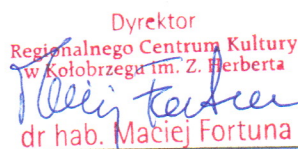 Dyrektor
Regionalnego Centrum Kultury
w Kołobrzegu im. Z. Herberta
Maciej Fortuna
dr hab. Maciej Fortuna